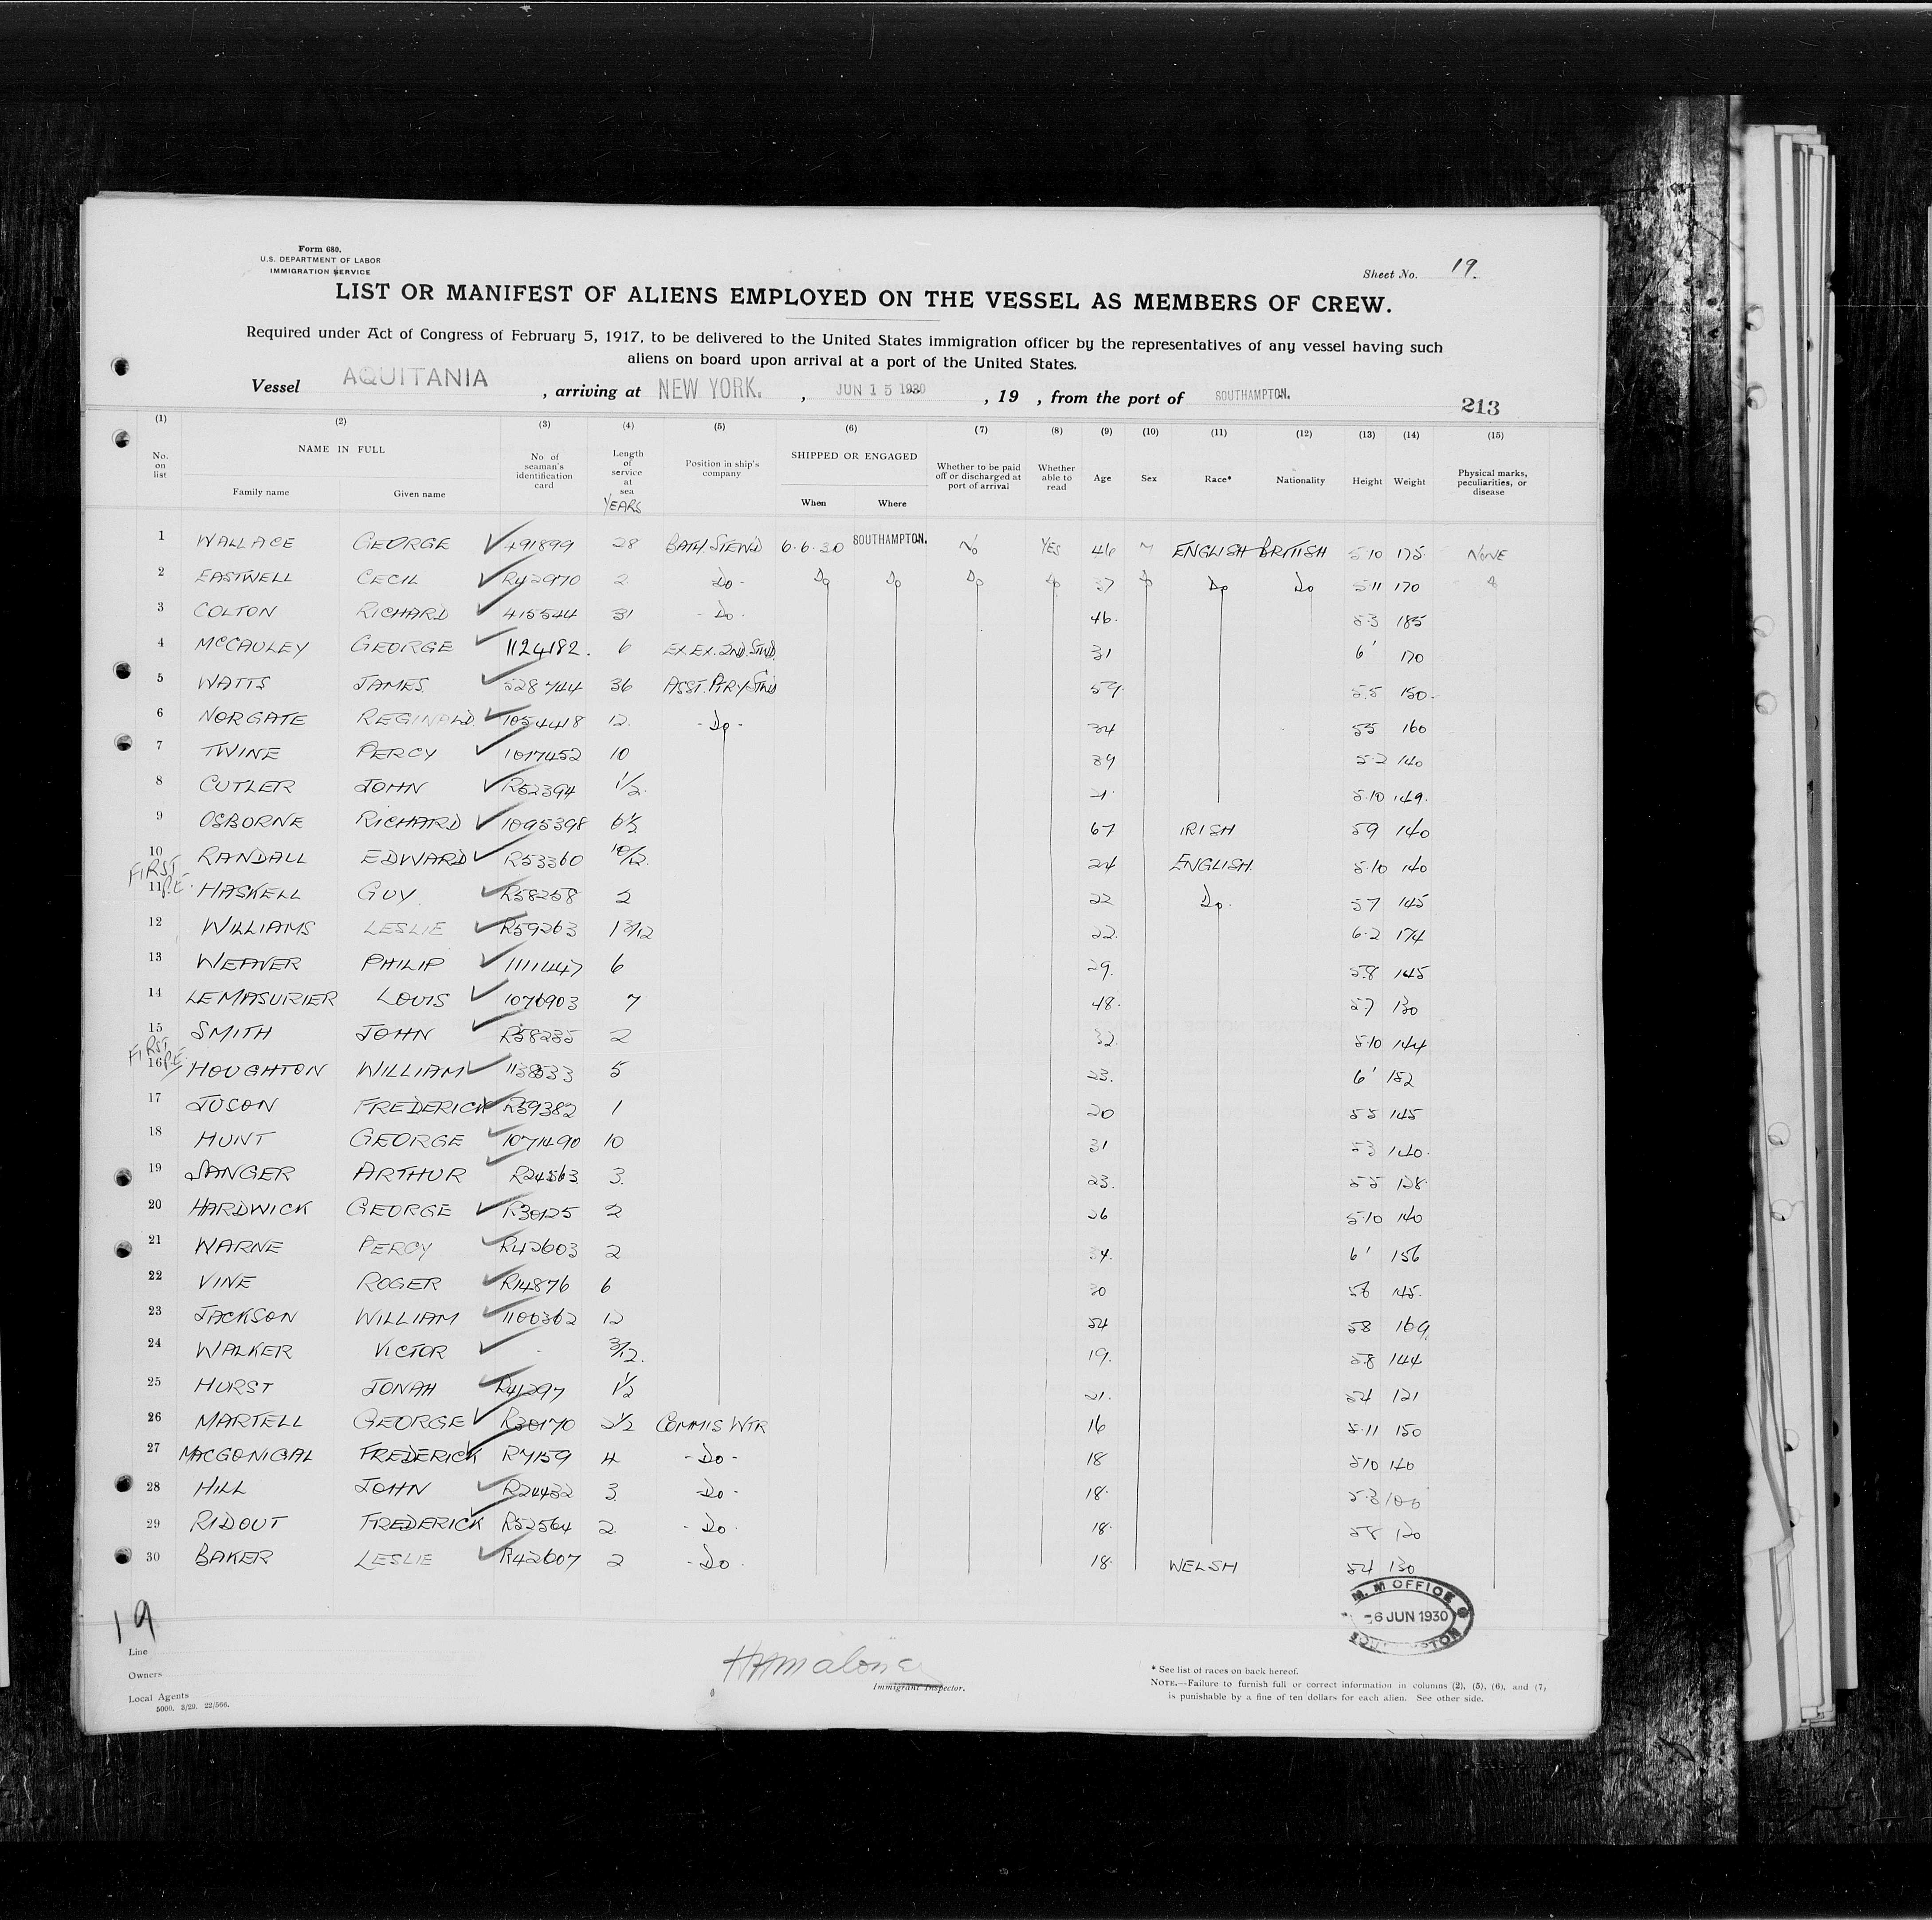 Form 680.
U.S. DEPARTMENT OF LABOR
IMMIGRATION SERVICE
Sheet No. 19.
LIST OR MANIFEST OF ALIENS EMPLOYED ON THE VESSEL AS MEMBERS OF CREW.
Required under Act of Congress of February 5, 1917, to be delivered to the United States immigration officer by the representatives of any vessel having such
aliens on board upon arrival at a port of the United States.
Vessel AQUITANIA , arriving at NEW YORK. , JUN 15 1930 , 19 , from the port of SOUTHAMPTON.
213
(1) (2) (3) (4) (5) (6) (7) (8) (9) (10) (11) (12) (13) (14) (15)
No. on list NAME IN FULL Family name Given name No of seaman's identification card Length of service at sea YEARS Position in ship's company SHIPPED OR ENGAGED When Where Whether to be paid off or discharged at port of arrival Whether able to read Age Sex Race* Nationality Height Weight Physical marks, peculiarities, or disease
1 WALLACE GEORGE ✓ 491899 28 BATH.STEW'D 6.6.30 SOUTHAMPTON. No YES 46 M ENGLISH BRITISH 5.10 175 NONE
2 EASTWELL CECIL ✓ R42970 2 Do - Do Do Do Do 37 Do Do Do 5.11 170
3 COLTON RICHARD ✓ 415544 31 - Do - 46. 5.3 185
4 McCAULEY GEORGE ✓ 1124182. 6 EX.EX.2ND.STWD. 31 6' 170
5 WATTS JAMES ✓ 528744 36 ASST.PTRY.STWD 59. 5.5 150.
6 NORGATE REGINALD. ✓ 1054418 12. - Do - 34 55 160
7 TWINE PERCY ✓ 1017452 10 39 5.2 140
8 CUTLER JOHN ✓ R52394 1/2. 21. 5.10 149.
9 OSBORNE RICHARD ✓ 1095398 6½ 67 IRISH 59 140
10 RANDALL EDWARD ✓ R53360 10/12. 24 ENGLISH. 5.10 140
FIRST P.E.
11 HASKELL GUY ✓ R58258 2 22 Do. 57 145
12 WILLIAMS LESLIE ✓ R59263 1 3/12 22. 6.2 174
13 WEAVER PHILIP ✓ 1111447 6 29. 5.8 145
14 LEMASURIER LOUIS ✓ 1076903 7 48. 57 130
15 SMITH JOHN ✓ R58235 2 32. 5.10 144
FIRST P.E.
16 HOUGHTON WILLIAM ✓ 1138533 5 23. 6' 152
17 JUSON FREDERICK ✓ R59382 1 20 55 145
18 HUNT GEORGE ✓ 1071490 10 31 53 140.
19 SANGER ARTHUR ✓ R24563 3. 23. 55 128.
20 HARDWICK GEORGE ✓ R30125 2 26 5.10 140
21 WARNE PERCY ✓ R42603 2 34. 6' 156
22 VINE ROGER ✓ R14876 6 30 56 145.
23 JACKSON WILLIAM ✓ 1100362 12 54 58 169
24 WALKER VICTOR ✓ - 3/12. 19. 5.8 144
25 HURST JONAH ✓ R41297 1½ 21. 54 121
26 MARTELL GEORGE ✓ R30170 2½ COMMIS WTR 16 5.11 150
27 MACGONIGAL FREDERICK ✓ R7159 4 - Do - 18 510 140
28 HILL JOHN ✓ R24432 3 - Do - 18. 5.3 100
29 RIDOUT FREDERICK ✓ R52564 2 - Do - 18. 58 120
30 BAKER LESLIE ✓ R42607 2 - Do 18. WELSH 54 130
M.M OFFICE
-6 JUN 1930
SOUTHAMPTON
19
Line
Owners
Local Agents
5000. 3/29. 22/566.
Immigrant Inspector.
* See list of races on back hereof.
NOTE.—Failure to furnish full or correct information in columns (2), (5), (6), and (7),
is punishable by a fine of ten dollars for each alien. See other side.